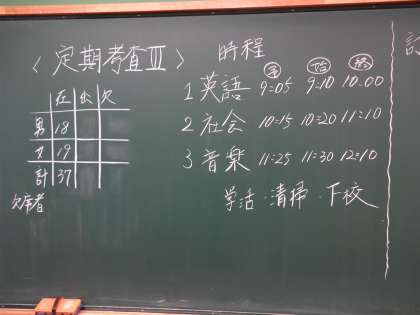 〈定期考査Ⅲ〉 時程
在 出 欠
男 18
女 19
計 37
欠席者
予 始 終
1 英語 9:05 9:10 10:00
2 社会 10:15 10:20 11:10
3 音楽 11:25 11:30 12:10
学活・清掃・下校